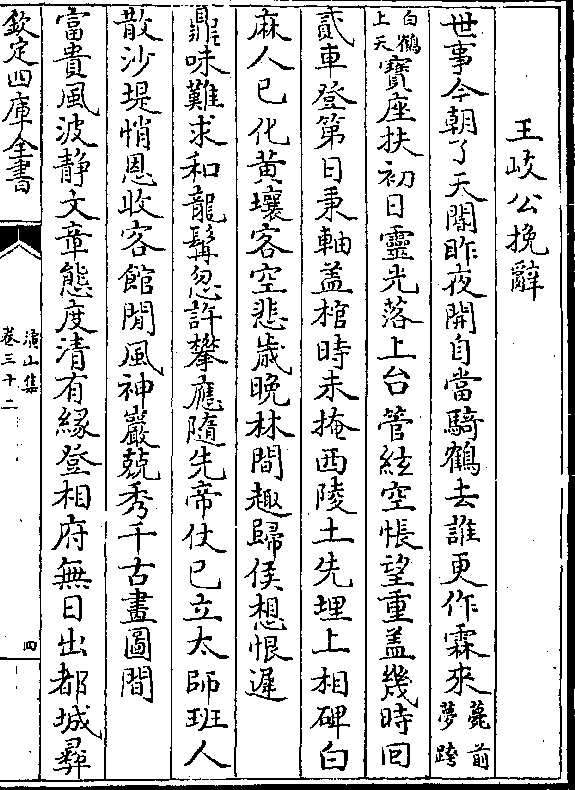 王岐公挽辭
世事今朝了天閽昨夜開自當騎鶴去誰更作霖來薨前夢跨
白鶴上天寶座扶初日靈光落上台管絃空悵望重蓋幾時回
貳車登第日秉軸蓋棺時未掩西陵土先埋上相碑白
麻人已化黃壤客空悲歲晩林間趣歸侯想恨遲
鼎味難求和龍髯忽許攀應隨先帝仗已立太師班人
散沙堤悄恩收客館閒風神巖兢秀千古畫圖間
富貴風波静文章態度清有緣登相府無日出都城彛
欽定四庫全書
潏山集
卷三十二
四